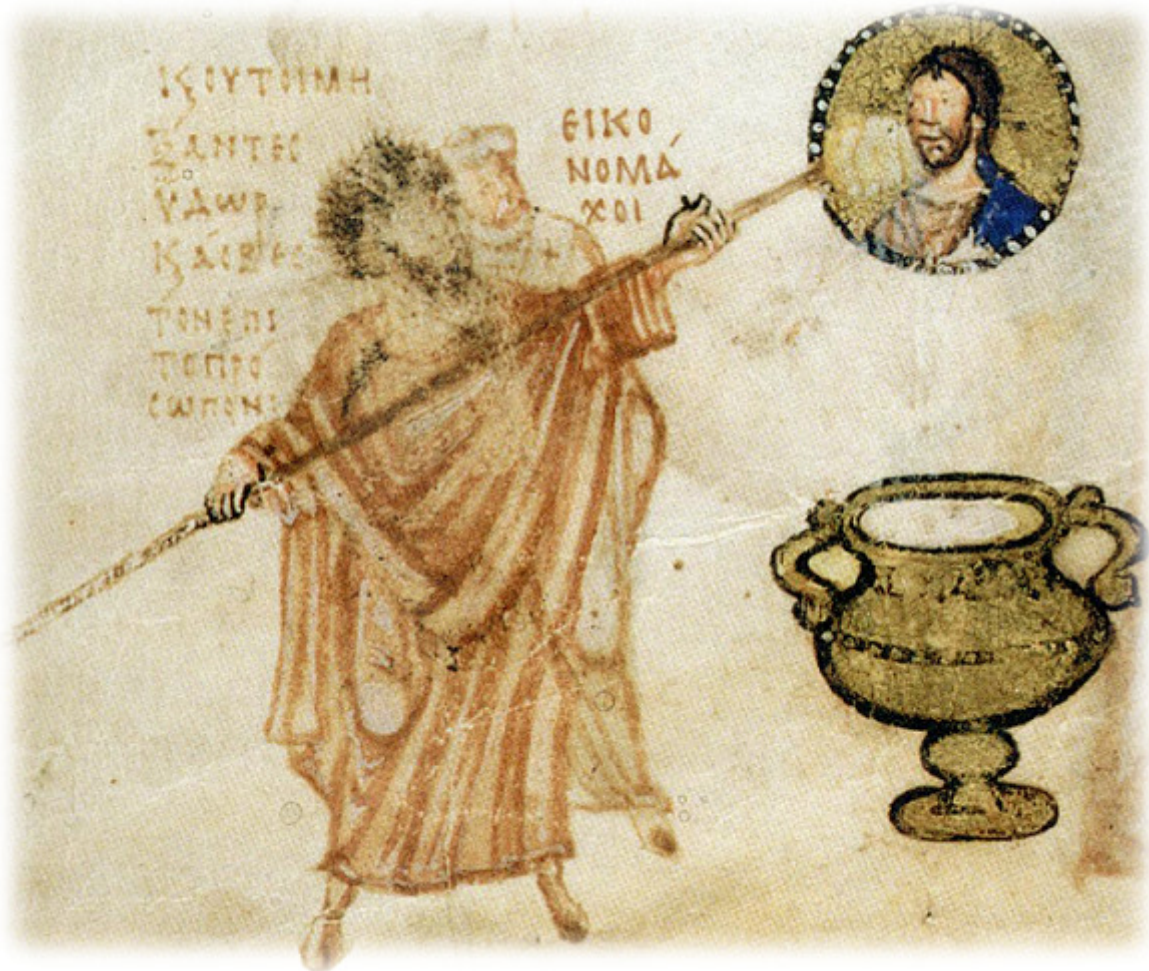 Κ͵ ΟΥΤΟΙ ΜΗ
ΞΑΝΤΕΣ
ΥΔΩΡ
ΤΟΝ ΕΠΙ
ΤΟ ΠΡΟ
ΣΩΠΟΝ
ΕΙΚΟ
ΝΟΜΆ
ΧΟΙ